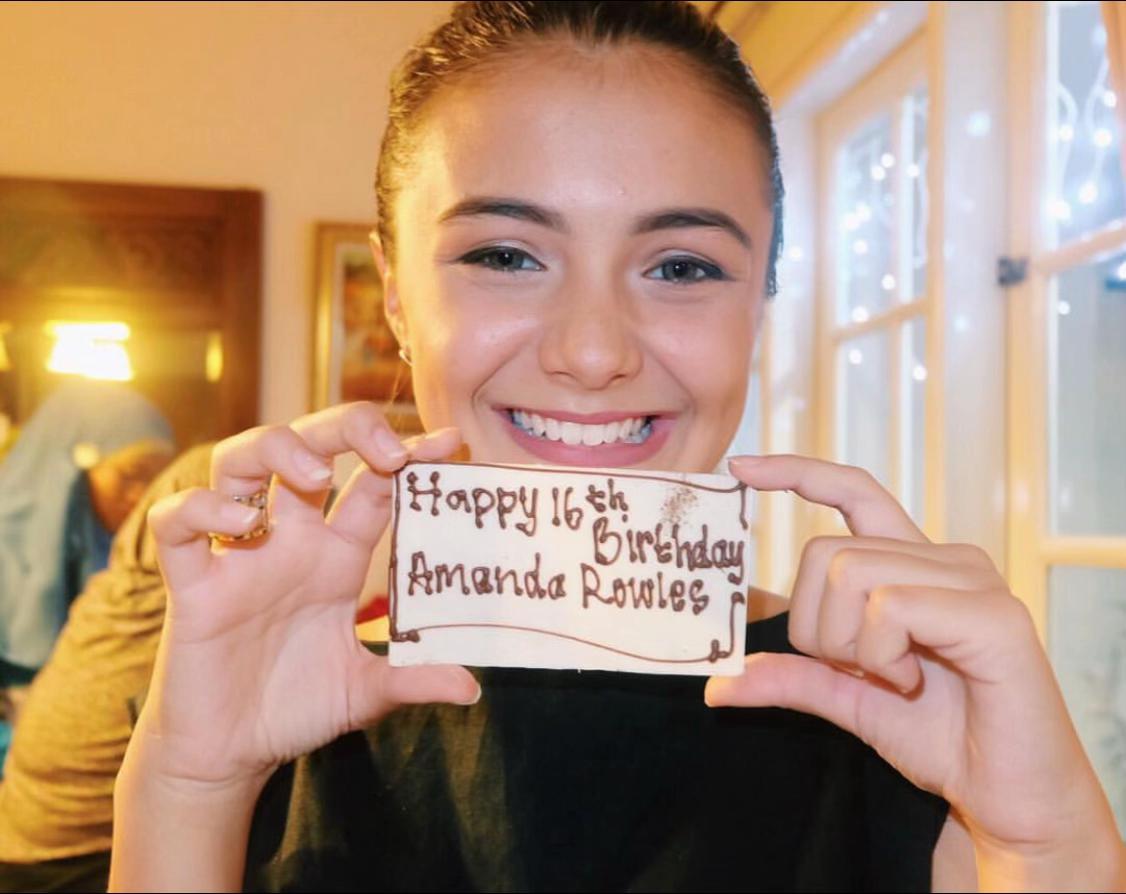 Happy 16th
Birthday
Amanda Rowles